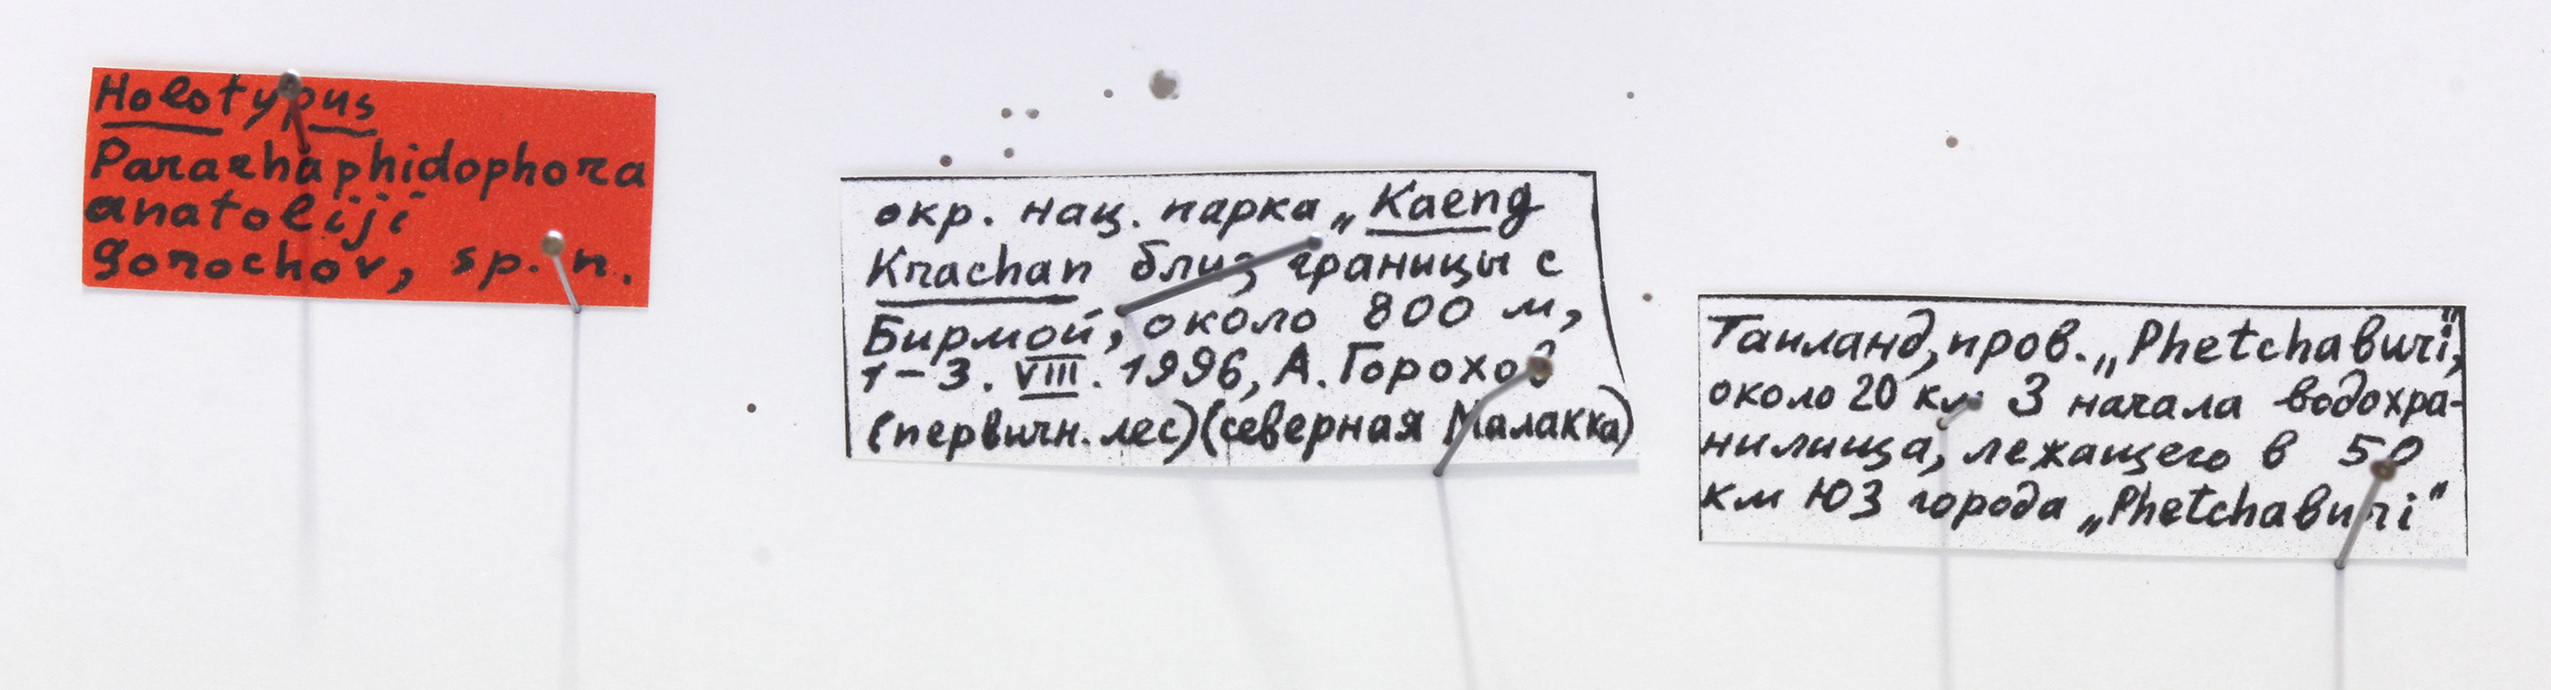 Holotypus
Pararhaphidophora
anatoliji
Gorochov, sp. n.
окр. нац. парка „Kaeng
Krachan близ границы с
Бирмой, около 800 м,
1–3. VIII. 1996, А. Горохов
(первичн. лес) (северная Малакка)
Таиланд, пров. „Phetchaburi",
около 20 км З начала водохра-
нилища, лежащего в 50
км ЮЗ города „Phetchaburi"